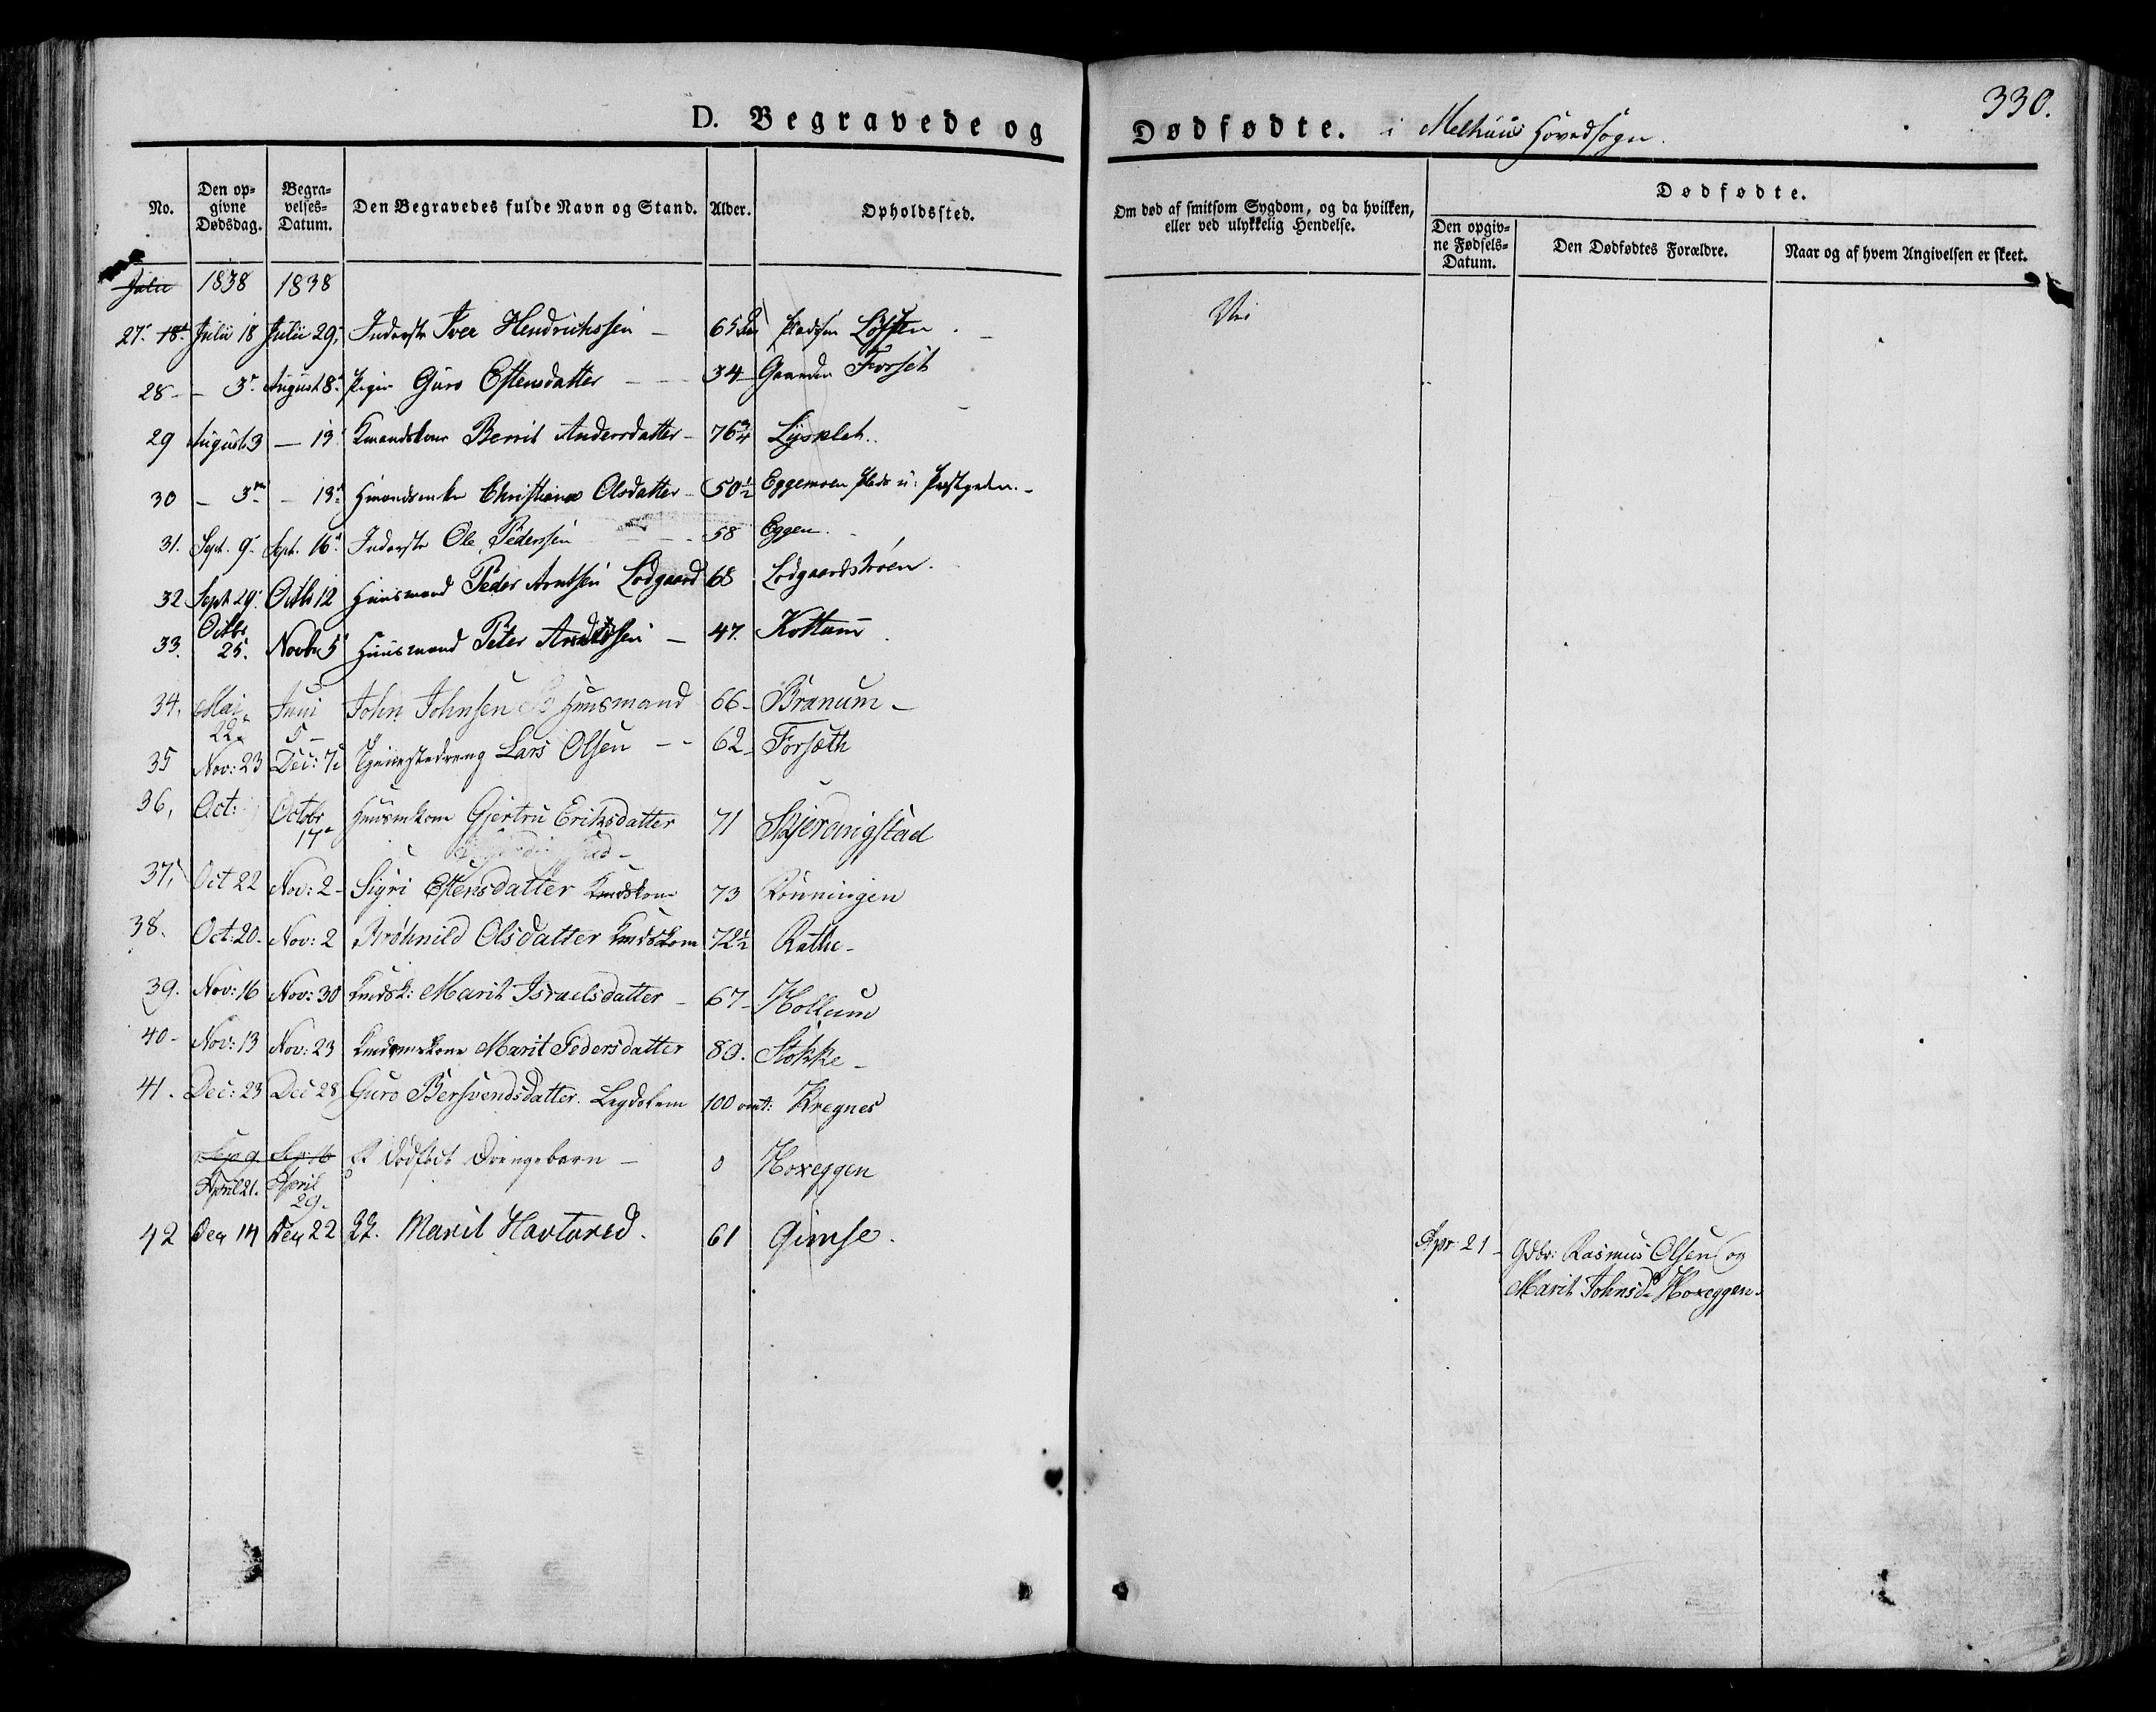 D. Begravede og
Dødfødte. i Melhuus Hovedsogn.
330.
No.
Den opgivne Dødsdag.
Begravelses-Datum.
Den Begravedes fulde Navn og Stand.
Alder.
Opholdssted.
Om død af smitsom Sygdom, og da hvilken, eller ved ulykkelig Hendelse.
Dødfødte.
Den opgivne Fødsels-Datum.
Den Dødfødtes Forældre.
Naar og af hvem Angivelsen er skeet.
Julii 1838 1838
27. 18. Julii 18 Julii 29. Inderste Iver Hendrichssen — 65 Pladsen Løften
28 - — 3. August 8. Pigen Guro Estensdatter — 34 — Gaarden Forset
29 August 3 — 13. Kmandskone Berrit Andersdatter — 76 3/4 Lysklet.
30 — 3 — 13. Hmandsenke Christiana Olsdatter — 50 1/2 Eggemoen Plads u: Præstgrden. -
31. Sept. 9. Sept. 16. Inderste Ole Pedersen 58 Eggen.
32 Sept 29. Octbr 12 Huusmand Peder Arntsen Lodgaard 68 Lodgaardstrøen.
33. Octbr 25. Novbr 5 Huusmand Peter Arntsen — 47. Kottum
34. Mai 22. Juni 5 — John Johnsen Huusmand 66 — Branum —
35 Nov: 23 Dec: 7. Tjenestedreng Lars Olsen — - 62 — Forsæth
36, Oct: Octobr 17. Huusmkone Gjertru Eriksdatter 71 Skjerdingstad
37, Oct 22 Nov: 2 — Sigri Estensdatter Kmdskone 73 Rønningen
38. Oct: 20. Nov: 2 Brøhnild Olsdatter Kmdskone 72 1/2 Rathe —
39. Nov: 16 Nov: 30 Kmdsk: Marit Israelsdatter — 67 — Hollum
40 - Nov: 13 Nov: 23 Marit Pedersdatter 80. Stokke —
41. Dec: 23 Dec 28 Guro Bersvendsdatter. Legdslem 100 omt: Kregnes
Sep 9 Sep 16 Et dødfødt Drengebarn — 0 Hoxeggen
April 21. April 29.
42 Dec 14 Dec 22 Marit Havtorsd. 61 Gimse.
Apr 21 - Gdbr: Rasmus Olsen og
Marit Johnsd. Hoxeggen.